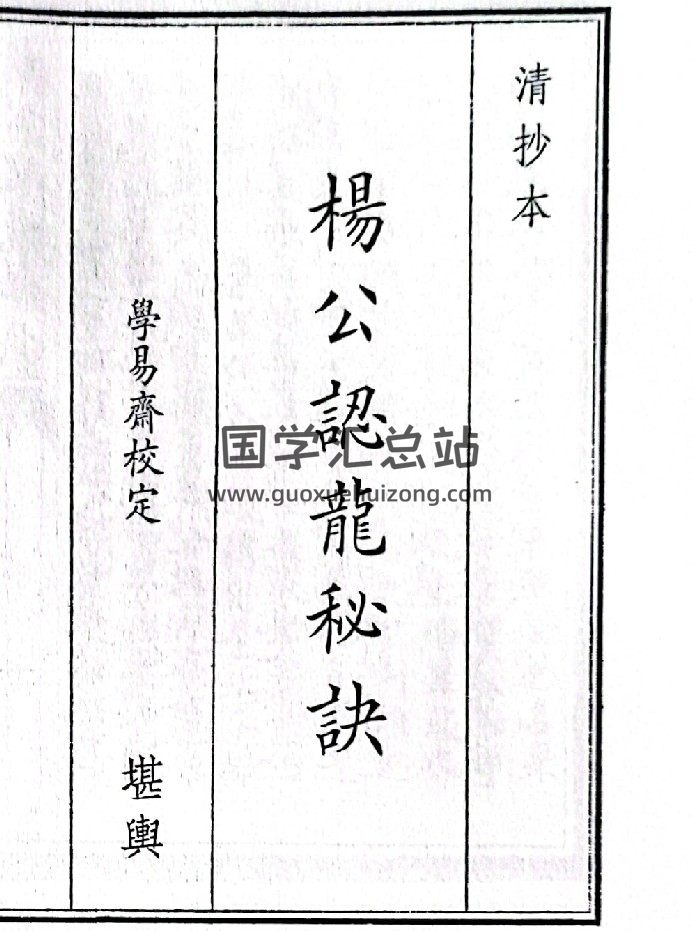 清抄本
楊公認龍秘訣
學易齋校定
堪輿
国学汇总站
www.guoxuehuizong.com